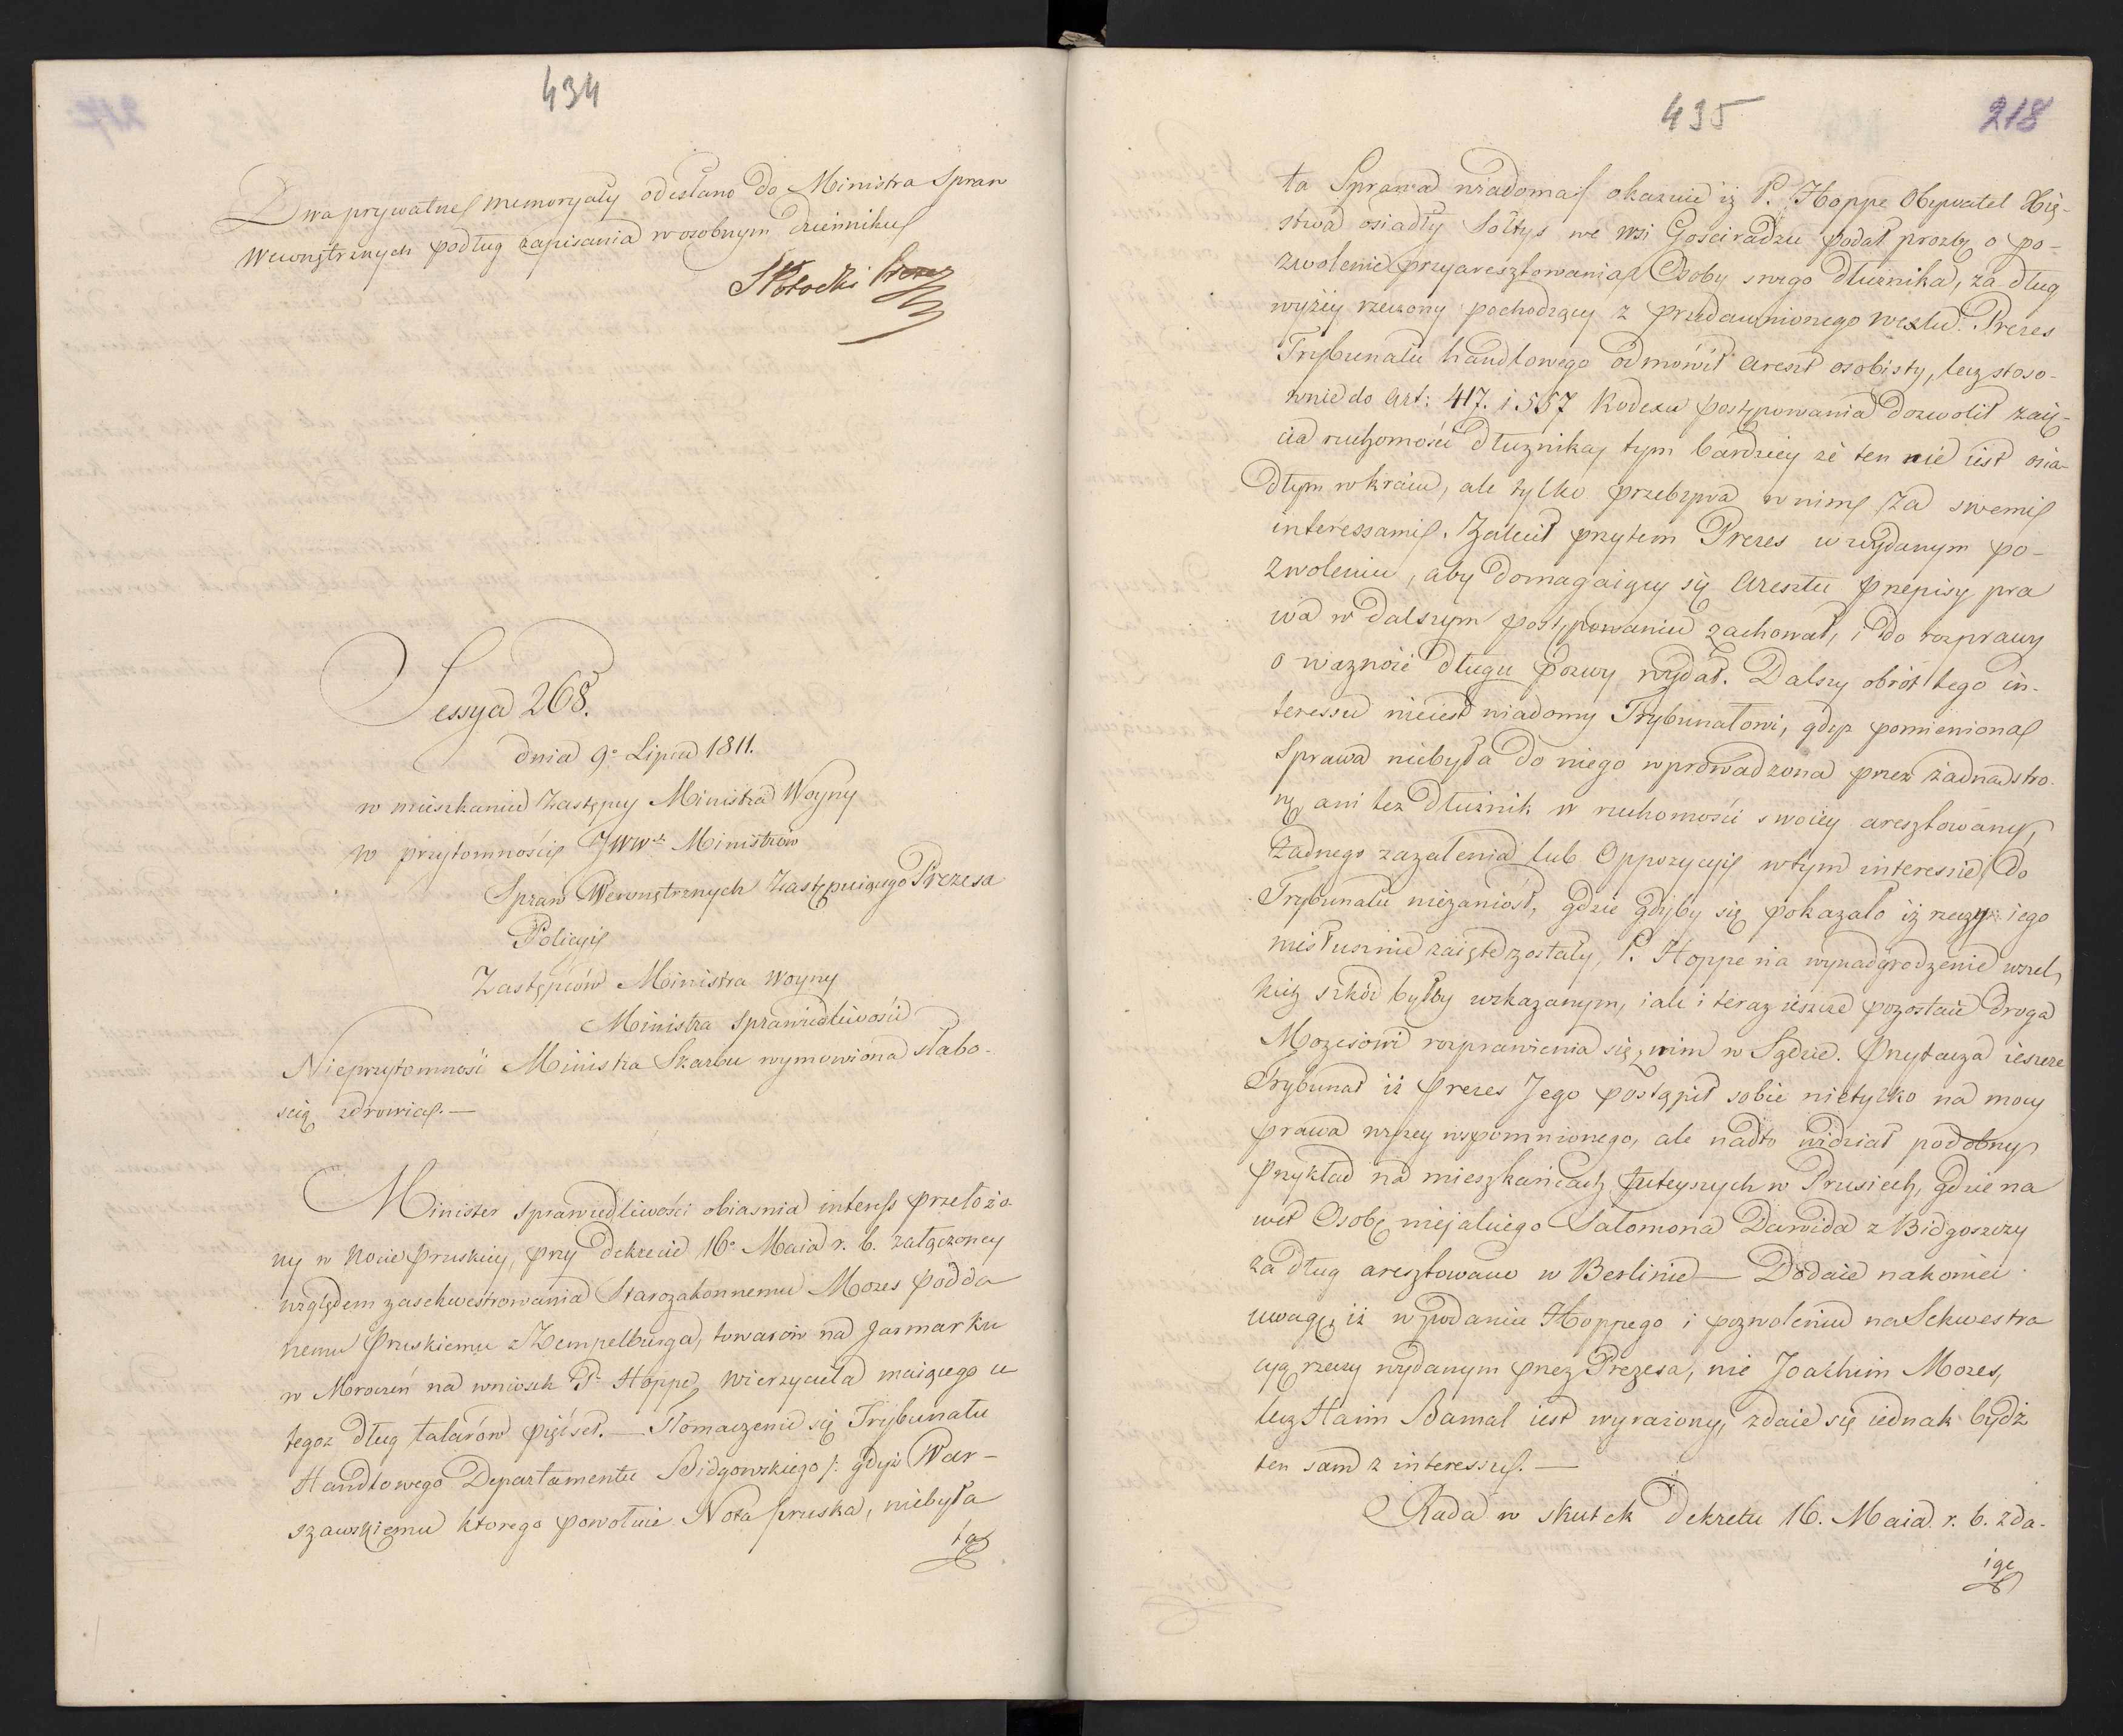 434
Dwa prywatne memoryały odesłano do Ministra Spraw
Wewnętrznych podług zapisania w osobnym dzienniku
SPotocki Prezes
Sessya 268.
dnia 9° Lipca 1811.
w mieszkaniu Zastępcy Ministra Woyny
w przytomności JWW. Ministrów
Spraw Wewnętrznych Zastępuiącego Prezesa
Policyi
Zastępców Ministra Woyny
Ministra Sprawiedliwości
Nieprzytomność Ministra Skarbu wymowiona słabo-
scią zdrowia.—
Minister Sprawiedliwości obiasnia interess przełożo-
ny w Nocie Pruskiey, przy dekrecie 16° Maia r. b. załączoney
względem zasekwestrowania Starozakonnemu Mozes podda
nemu Pruskiemu z Zempelburga, towarów na Jarmarku
w Mroczeń na wniosek P. Hoppe, Wierzyciela maiącego u
tegoż dług talarów pięćset. — Tłomaczenie się Trybunału
Handlowego Departamentu Bidgowskiego /: gdyż War-
szawskiemu ktorego powołuie Nota pruska, niebyła
ta
435
218
ta Sprawa wiadoma/ okazuie iż P. Hoppe Obywatel Xię-
stwa osiadły Sołtys we wsi Gościradzu podał prozbę o po-
zwolenie przyaresztowania Osoby swego dłużnika, za dług
wyżey rzeczony pochodzący z przedawnionego wexlu. Prezes
Trybunału handlowego odmówił areszt osobisty, lecz stoso-
wnie do Art: 417. i 557 Kodexu postępowania dozwolił zaię-
cia ruchomości dłużnika, tym bardziey że ten nie iest osia-
dłym w kraiu, ale tylko przebywa w nim za swemi
interessami. Zalecił przytem Prezes w wydanym po-
zwoleniu, aby domagaiący się Aresztu przepisy pra
wa w dalszym postępowaniu zachował, i do rozprawy
o ważność długu pozwy wydał. Dalszy obrót tego in-
teressu nieiest wiadomy Trybunałowi, gdyż pomieniona
Sprawa niebyła do niego wprowadzona przez żadną stro-
nę ani też dłużnik w ruchomości swoiey aresztowany,
żadnego zażalenia lub Oppozycyi w tym interesie do
Trybunału niezaniósł, gdzie gdyby się pokazało iż rzeczy iego
niesłusznie zaięte zostały, P. Hoppe na wynadgrodzenie wszel
kich szkód byłby wskazanym, iale i teraz ieszcze pozostaie droga
Mozesowi rozprawienia się z nim w Sądzie. Przytacza ieszcze
Trybunał iż Prezes Jego postąpił sobie nietylko na mocy
prawa wyżey wspomnionego, ale nadto widział podobny
przykład na mieszkańcach tuteyszych w Prusiech, gdzie na
wet Osobę nieiakiego Salomona Dawida z Bidgoszczy
za dług aresztowano w Berlinie — Dodaie nakoniec
uwagę, iż w podaniu Hoppego i pozwoleniu na Sekwestra
cyą rzeczy wydanym przez Prezesa, nie Joachim Mozes,
lecz Haim Bamal iest wyrażony, zdaie się iednak bydź
ten sam z interessu. —
Rada w skutek Dekretu 16. Maia r. b. zda-
iąc